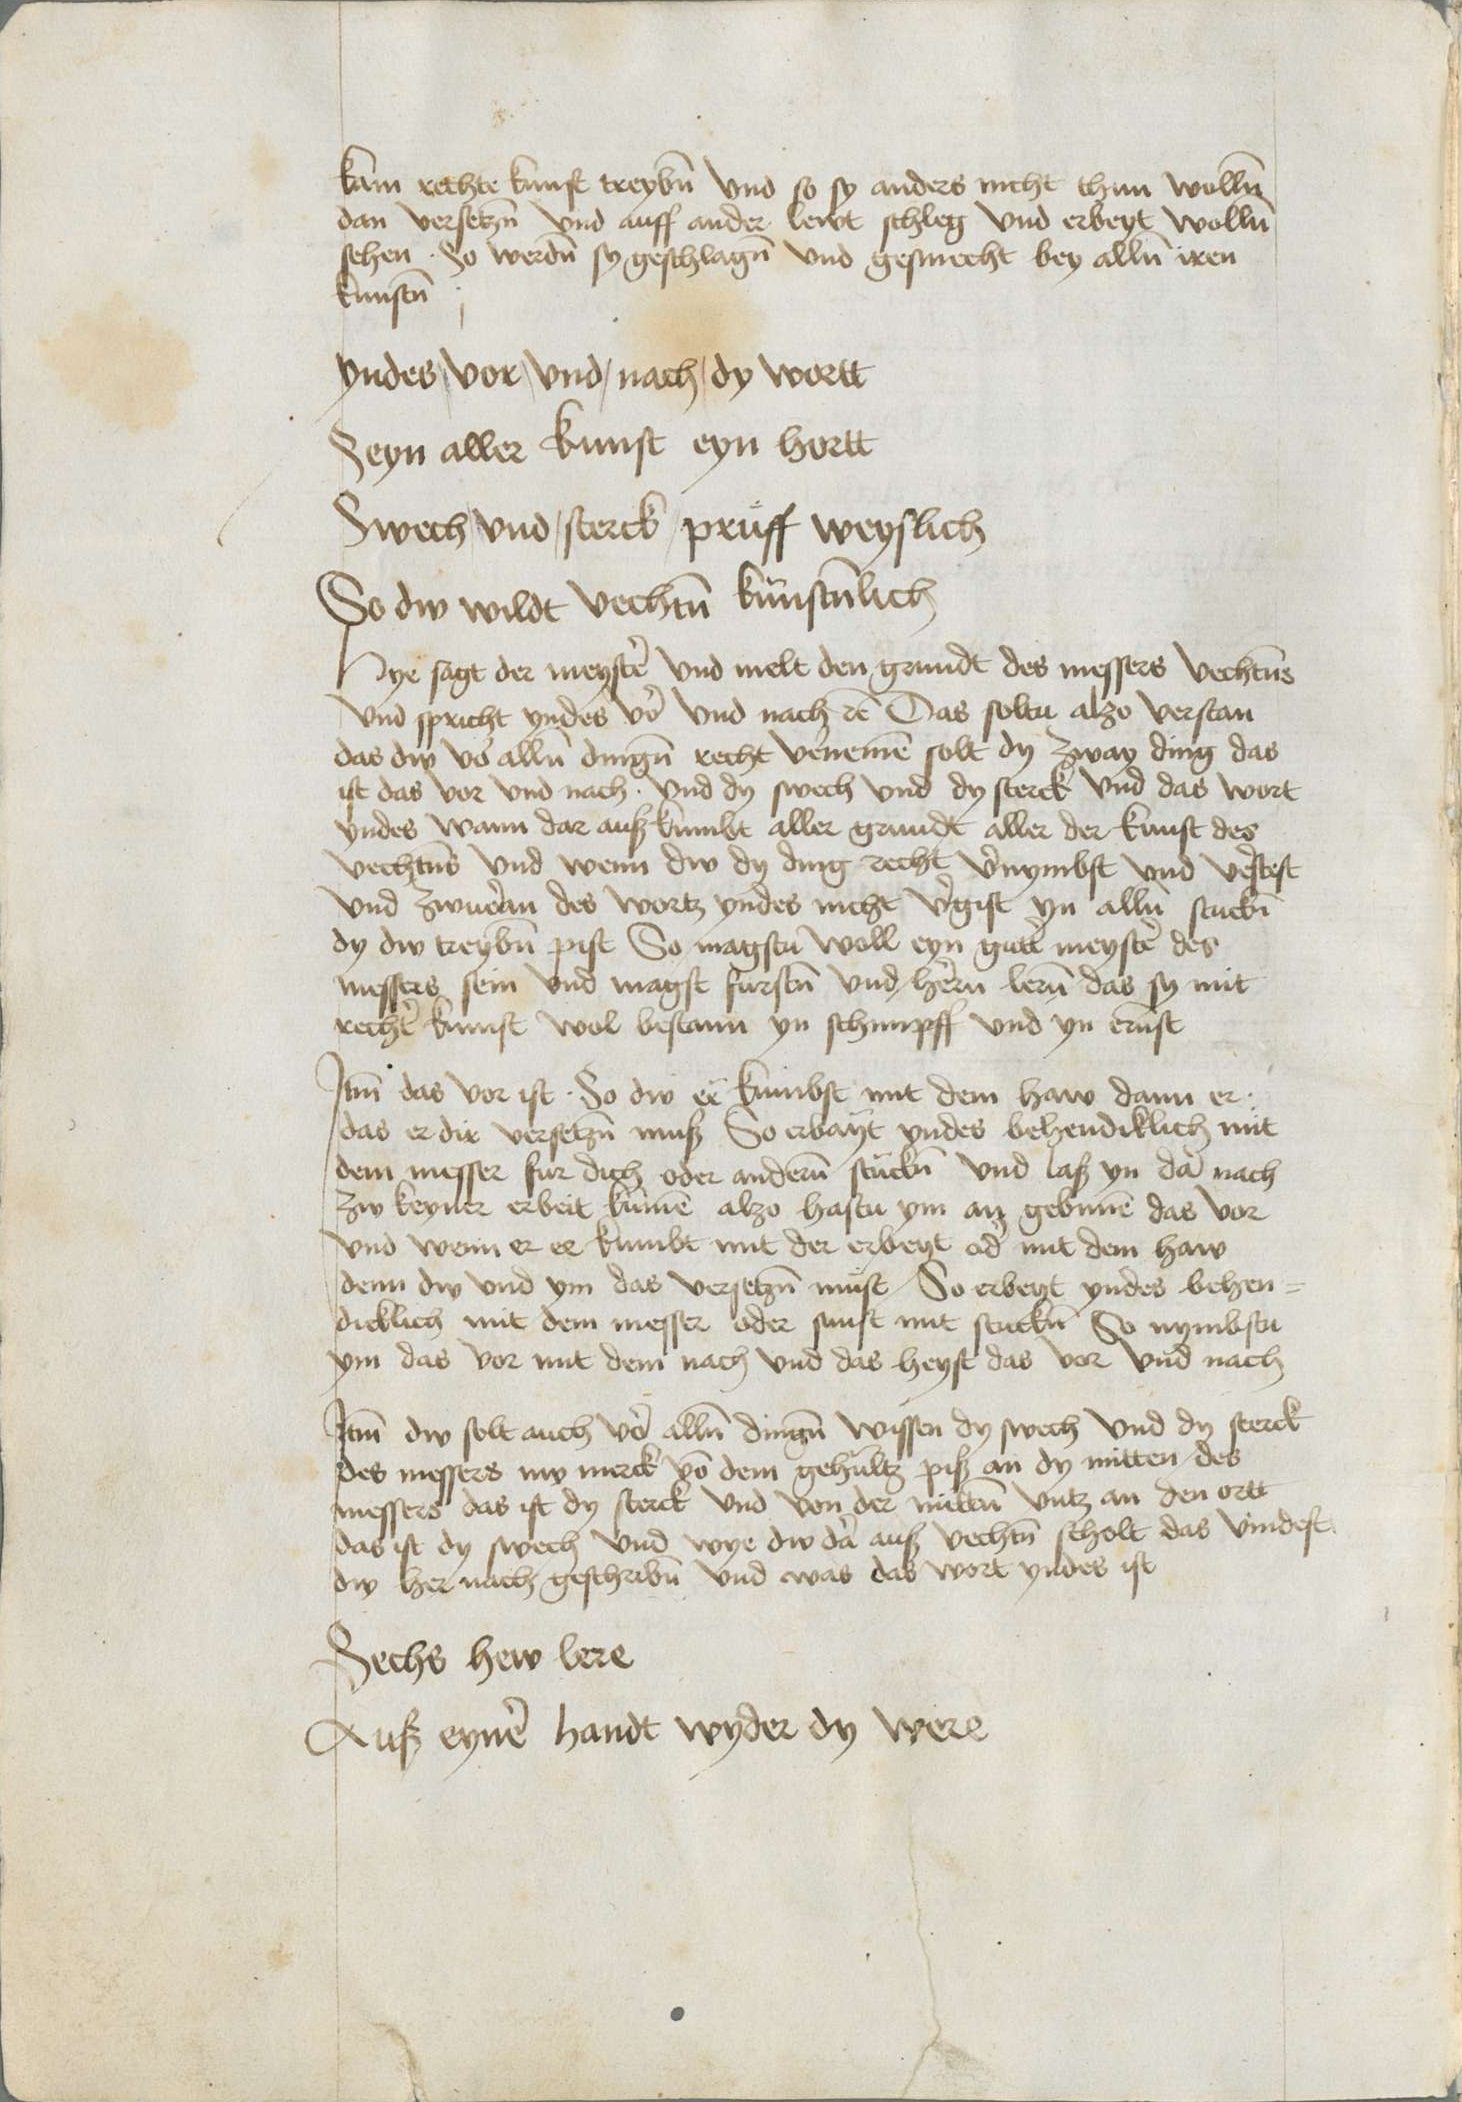 kain rechte kunst treybn̄ vnd so sy anders nicht thun wolln̄
dan versetzn̄ vnd auff ander lewt schleg vnd erbeyt wolln̄
sehen · So werdn̄ sy geschlagn̄ vnd gesmecht bey alln̄ iren
kunstn̄
yndes / vor / vnd / nach / dy wortt
Seyn aller kunst eyn hortt
Swech / vnd / sterck / prüff weyslich
So dw wildt vechtn̄ künstn̄lich
Hye sagt der meyst̄e vnd melt den grundt des messers vechtn̄s
vnd spricht yndes vo᷑ vnd nach rē Das soltu alzo verstan
das dw vo᷑ alln̄ dingn̄ recht v᷑nemē solt dy zway ding das
ist das vor vnd nach · vnd dy swech vnd dy sterck vnd das wort
yndes wann dar auß kumbt aller grundt aller der kunst des
vechtn̄s vnd wenn dw dy ding recht v᷑nymbst vnd v᷑stest
vnd zwuera᷑n des wortz yndes nicht v᷑gist yn alln̄ stuckn̄
dy dw treybn̄ pist So magstu woll eyn gutt᷑ meyst᷑ des
messers sein vnd magst furstn̄ vnd he᷑rn lern̄ das sy mit
recht᷑ kunst wol bestann yn schimpff vnd yn ernst
Itm̄ das vor ist · So dw ee kumbst mit dem haw dann er ·
das er dir versetzn̄ muß So erbayt yndes behendiklich mit
dem messer fur dich oder andern̄ stuckn̄ vnd laß yn da᷑ nach
zw keyner erbeit kumē alzo hastu ym an gebunē das vor
vnd wenn er ee kumbt mit der erbeyt od᷑ mit dem haw
denn dw vnd ym das versetzn̄ müst So erbeyt yndes behen=
dicklich mit dem messer oder sunst mit stuckn̄ So nymbstu
ym das vor mit dem nach vnd das heyst das vor vnd nach
Itm̄ dw solt auch vo᷑ alln̄ dingn̄ wissen dy swech vnd dy sterck
des messers nw merck vō dem gehültz piß an dy mitten des
messers das ist dy sterck vnd von der mittn̄ vntz an den ortt
das ist dy swech vnd wye dw da᷑ auß vechtn̄ scholt das vindest
dw her nach geschribn̄ vnd was das wort yndes ist
Sechs hew lere
Auß eyne᷑ handt wyder dy were